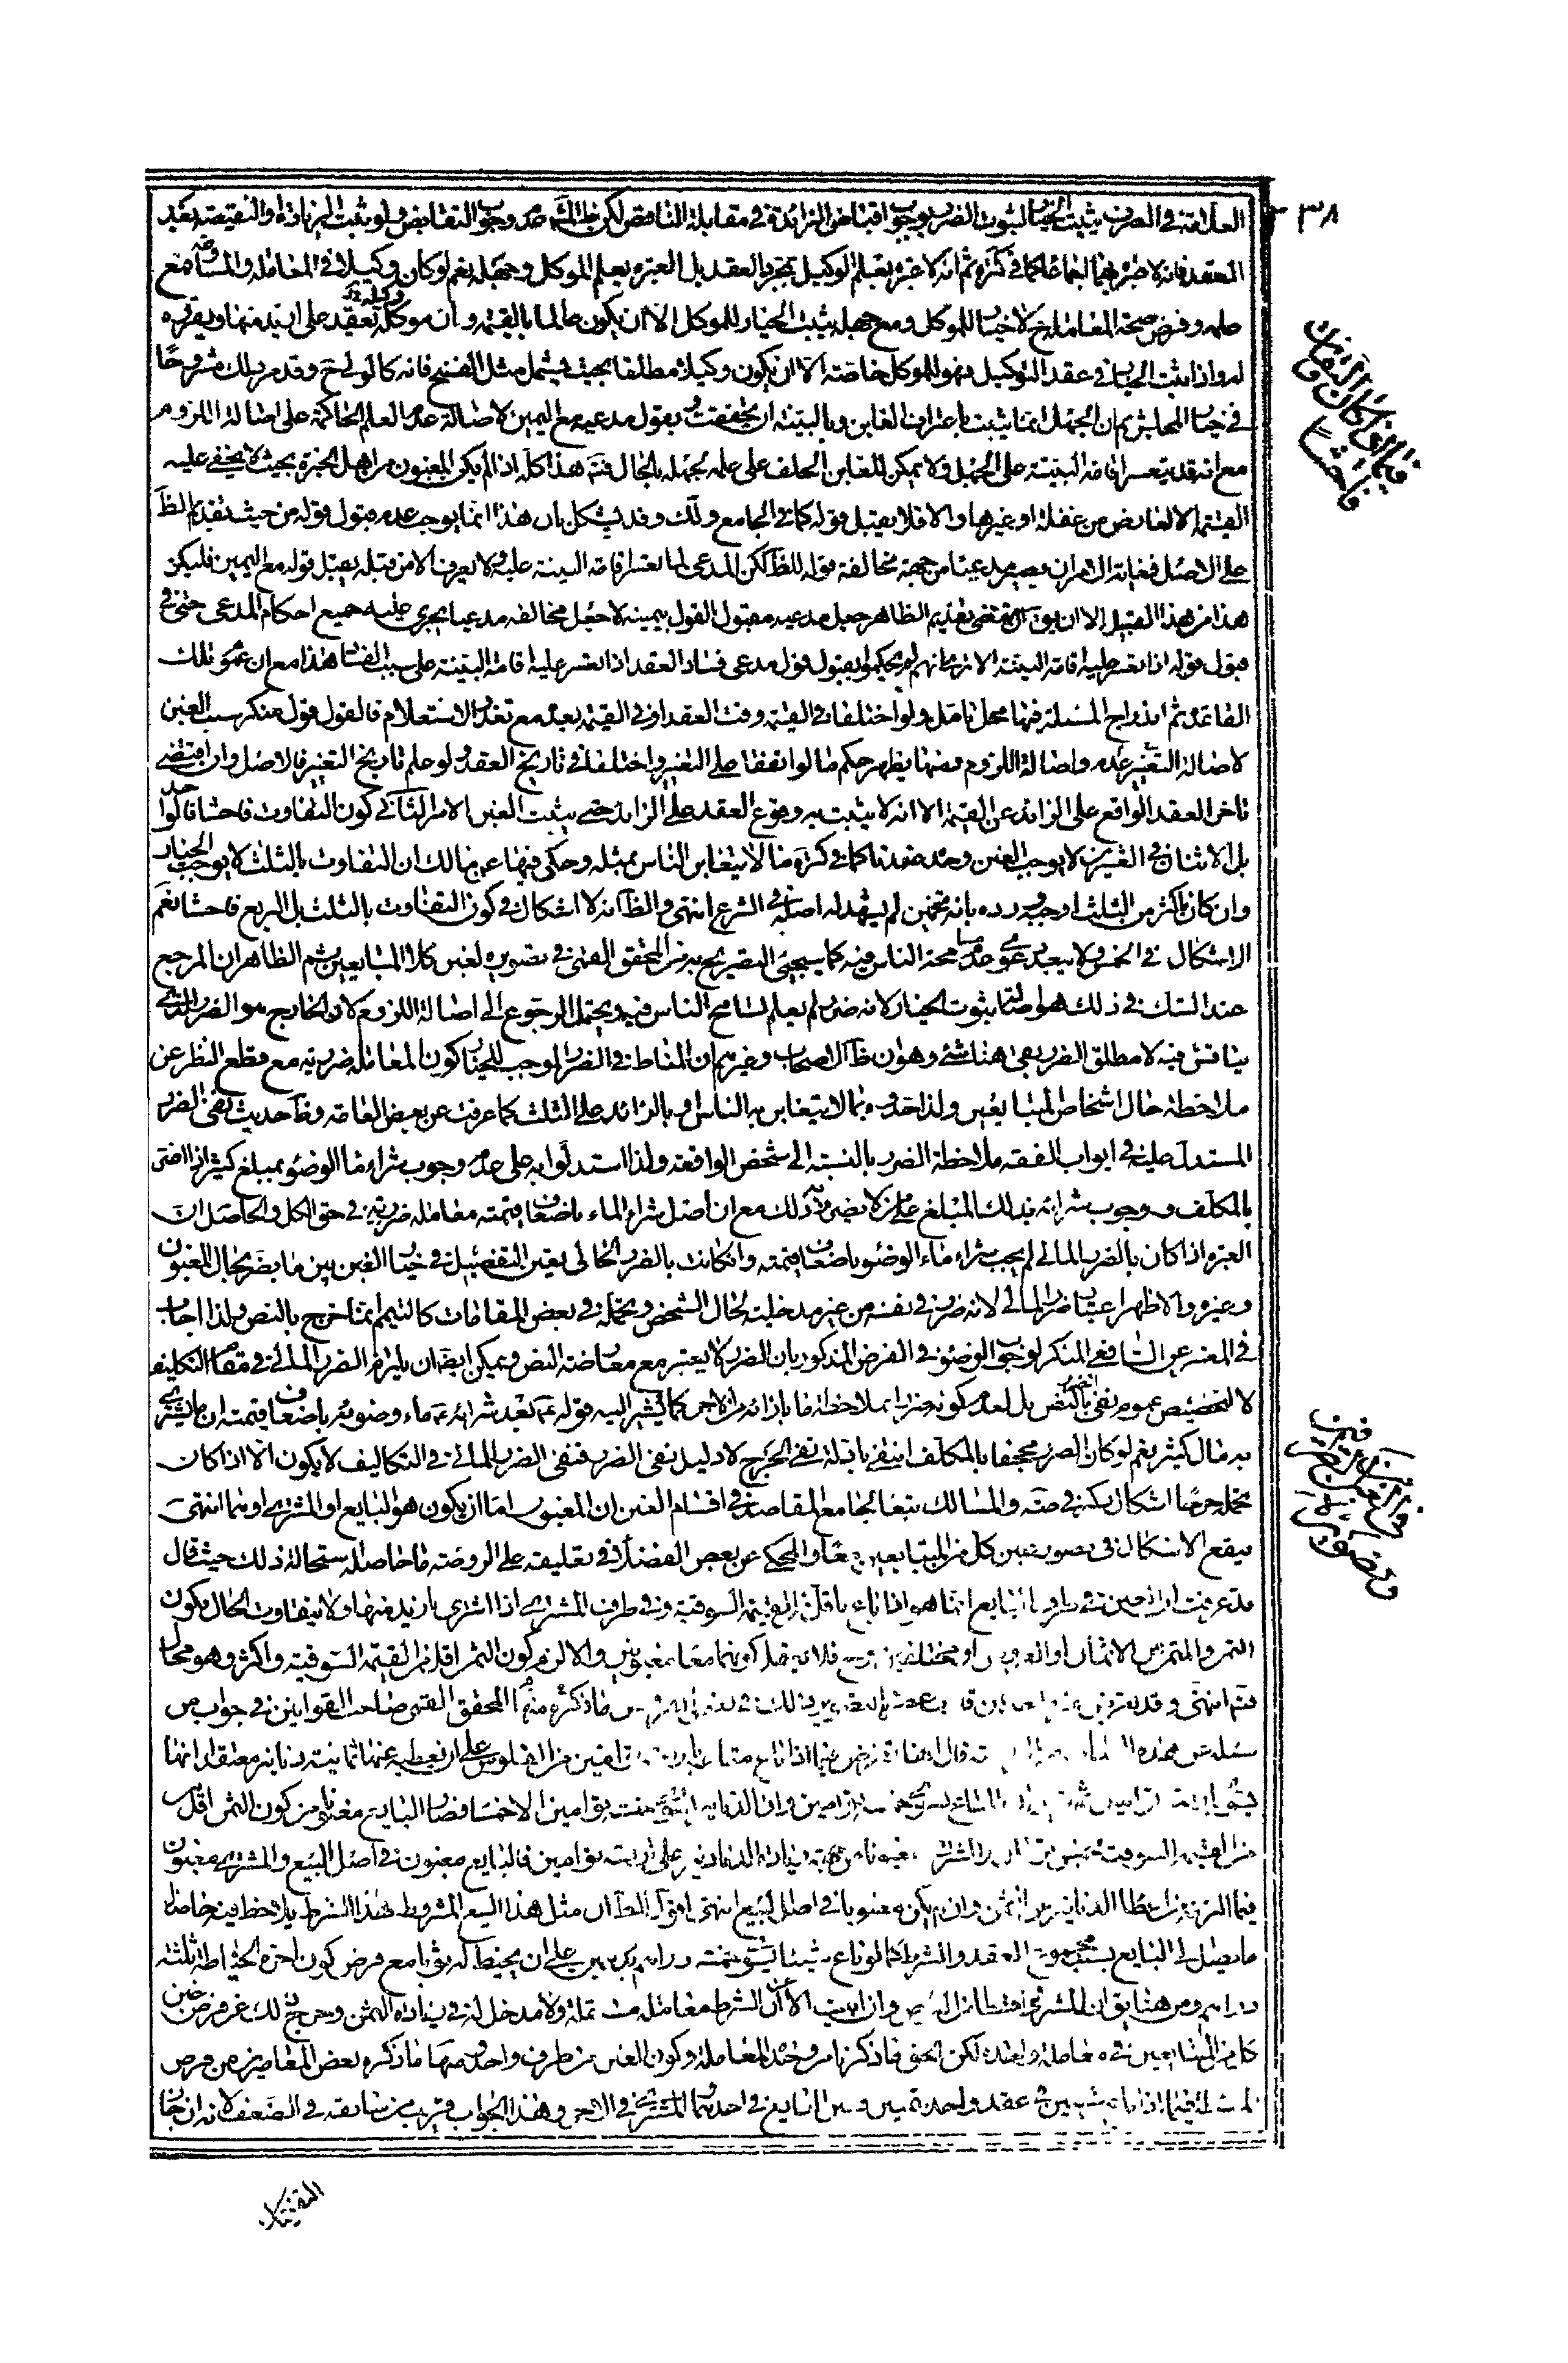 ٢٣٨
العلامة في الصرف يثبت الخيار لثبوت الضرر بوجوب اقباض الزائدة في مقابلة الناقص لكن ظاهر المشهور عدم وجوب التقابض ولو ثبت الزيادة او النقيصة بعد
العقد فانه لا عبرة بهما اجماعا كما في كرة ثم انه لا عبرة بعلم الوكيل بمجرد العقد بل العبرة بعلم الموكل وجهله نعم لو كان وكيلا في المعاملة والمساومة فمع
علمه وفرض صحة المعاملة ح لا خيار للموكل ومع جهله يثبت الخيار للموكل الا ان يكون عالما بالقيمة وان موكله وكيله يعقد على ازيد منها ويقرره
له واذا ثبت الخيار في عقد الوكيل فهو للموكل خاصة الا ان يكون وكيلا مطلقا بحيث يشمل مثل الفسخ فانه كالولي ح وقد مر ذلك مشروحا
في خيار المجلس ثم ان الجهل انما يثبت باعتراف الغابن وبالبينة ان تحققت وبقول مدعيه مع اليمين لاصالة عدم العلم الحاكمة على اصالة اللزوم
مع انه قد يتعسر اقامة البينة على الجهل ولا يمكن للغابن الحلف على علمه لجهله بالحال فتم هذا كله اذا لم يكن المغبون من اهل الخبرة بحيث لا يخفى عليه
القيمة الا لعارض من غفلة او غيرها والا فلا يقبل قوله كما في الجامع ولك وقد يشكل بان هذا انما يوجب عدم قبول قوله من حيث تقديم الظ
على الاصل فغاية الامر ان يصير مدعيا من جهة مخالفة قوله للظ لكن المدعي لما تعسر اقامة البينة عليه ولا يعرف الا من قبله يقبل قوله مع اليمين فليكن
هذا من هذا القبيل الا ان يق ان مقتضى تقديم الظاهر جعل مدعيه مقبول القول بيمينه لا جعل مخالفه مدعيا يجري عليه جميع احكام المدعي حتى في
قبول قوله اذا تعسر عليه اقامة البينة الا ترى انهم لم يحكموا بقبول قول مدعي فساد العقد اذا تعسر عليه اقامة البينة على سبب الفساد هذا مع ان عموم تلك
القاعدة ثم اندراج المسئلة فيها محل تامل ولو اختلفا في القيمة وقت العقد او في القيمة بعده مع تعذر الاستعلام فالقول قول منكر سبب الغبن
لاصالة عدم التغيير واصالة اللزوم ومنها يظهر حكم ما لو اتفقا على التغيير واختلفا في تاريخ العقد ولو علم تاريخ التغيير فالاصل وان اقتضى
تاخر العقد الواقع على الزائد عن القيمة الا انه لا يثبت به وقوع العقد على الزائد حتى يثبت الغبن الامر الثاني كون التفاوت فاحشا فالواحد
بل الاثنان في العشرين لا يوجب الغبن وحده عندنا كما في كرة ما لا يتغابن الناس بمثله وحكى فيها عن مالك ان التفاوت بالثلث لا يوجب الخيار
وان كان باكثر من الثلث اوجبه ورده بانه تخمين لم يشهد له اصل في الشرع انتهى والظ انه لا اشكال في كون التفاوت بالثلث بل الربع فاحشا نعم
الاشكال في الخمس ولا يبعد دعوى عدم مسامحة الناس فيه كما سيجيئ التصريح به من المحقق القمي في تصويره لغبن كلا المتبايعين ثم الظاهر ان المرجع
عند الشك في ذلك هو اصالة ثبوت الخيار لانه ضرر لم يعلم تسامح الناس فيه ويحتمل الرجوع الى اصالة اللزوم لان الخارج هو الضرر الذي
يناقش فيه لا مطلق الضرر بقى هنا شئ وهو ان ظ الاصحاب وغيرهم ان المناط في الضرر الموجب للخيار كون المعاملة ضررية مع قطع النظر عن
ملاحظة حال اشخاص المتبايعين ولذا حدوه بما لا يتغابن به الناس او بالزائد على الثلث كما عرفت عن بعض العامة وظ حديث نفي الضرر
المستدل عليه في ابواب الفقه ملاحظة الضرر بالنسبة الى شخص الواقعة ولذا استدلوا به على عدم وجوب شراء ماء الوضوء بمبلغ كثير اذا اضر
بالمكلف ووجوب شرائه بذلك المبلغ على من لا يضر به ذلك مع ان اصل شراء الماء باضعاف قيمته معاملة ضررية في حق الكل والحاصل ان
العبرة اذا كان بالضرر المالي لم يجب شراء ماء الوضوء باضعاف قيمته وان كانت بالضرر الحالي تعين التفصيل في خيار الغبن بين ما يضر بحال المغبون
وغيره والاظهر اعتبار الضرر المالي لانه ضرر في نفسه من غير مدخلية لحال الشخص وتحمله في بعض المقامات كالتيمم انما خرج بالنص ولذا اجاب
في المعتبر عن الشافعي المنكر لوجوب الوضوء في الفرض المذكور بان الضرر لا يعتبر مع معارضة النص ويمكن ايضا ان يلتزم الضرر المالي في مقام التكليف
لا لتخصيص عموم نفي الضرر بالنص بل لعدم كونه ضررا بملاحظة ما بازائه من الاجر كما يشير اليه قوله ع بعد شرائه ع ماء وضوئه باضعاف قيمته ان ما يشترى
به مال كثير نعم لو كان الضرر مجحفا بالمكلف انتفى بادلة نفي الحرج لا دليل نفي الضرر فنفي الضرر المالي في التكاليف لا يكون الا اذا كان
تحمله حرجا اشكال ذكر في ضه والمسالك تبعا لجامع المقاصد في اقسام الغبن ان المغبون اما ان يكون هو البايع او المشتري او هما انتهى
فيقع الاشكال في تصوير غبن كل من المتبايعين معا والمحكي عن بعض الفضلاء في تعليقه على الروضة ما حاصله استحالة ذلك حيث قال
قد عرفت ان الغبن في طرف البايع انما هو اذا باع باقل من القيمة السوقية وفي طرف المشتري اذا اشترى بازيد منها ولا يتفاوت الحال بكون
الثمن والمثمن من الاثمان او العروض او مختلفين وح فلا يعقل كونهما معا مغبونين والا لزم كون الثمن اقل من القيمة السوقية واكثر وهو محال
فتم انتهى وقد تعرض غير واحد ممن قارب عصرنا لتصوير ذلك في بعض الفروض منها ما ذكره المحقق القمي صاحب القوانين في جواب من
سئله عن هذه العبارة من الروضة قال انها تفرض فيما اذا باع متاعه باربعة توامين من الفلوس على ان يعطيه عنها ثمانية دنانير معتقدا انها
تسوى اربعة توامين ثم تبين ان المتاع يسوى خمسة توامين وان الدنانير تسوى خمسة توامين الا خمسا فصار البايع مغبونا من كون الثمن اقل
من القيمة السوقية بخمس تومان والمشتري مغبونا من جهة زيادة الدنانير على اربعة توامين فالبايع مغبون في اصل البيع والمشتري مغبون
فيما التزمه من اعطاء الدنانير عن الثمن وان لم يكن مغبونا في اصل البيع انتهى اقول الظ ان مثل هذا البيع المشروط بهذا الشرط يلاحظ فيه حاصل
ما يصل الى البايع بسبب مجموع العقد والشرط كما لو باع شيئا يسوى خمسة دراهم بدرهمين على ان يخيط له ثوبا مع فرض كون اجرة الخياطة ثلثة
دراهم ومن هنا يق ان للشروط قسطا من العوض وان ابيت الا عن ان الشرط معاملة مستقلة ولا مدخل له في زيادة الثمن خرج ذلك عن فرض غبن
كل من المتبايعين في معاملة واحدة لكن الحق ما ذكرنا من وحدة المعاملة وكون الغبن من طرف واحد ومنها ما ذكره بعض المعاصرين من فرض
المسئلة فيما اذا باع شيئين في عقد واحد بثمنين فغبن البايع في احدهما والمشتري في الاخر وهذا الجواب قريب من سابقه في الضعف لانه ان جاز
التفكيك